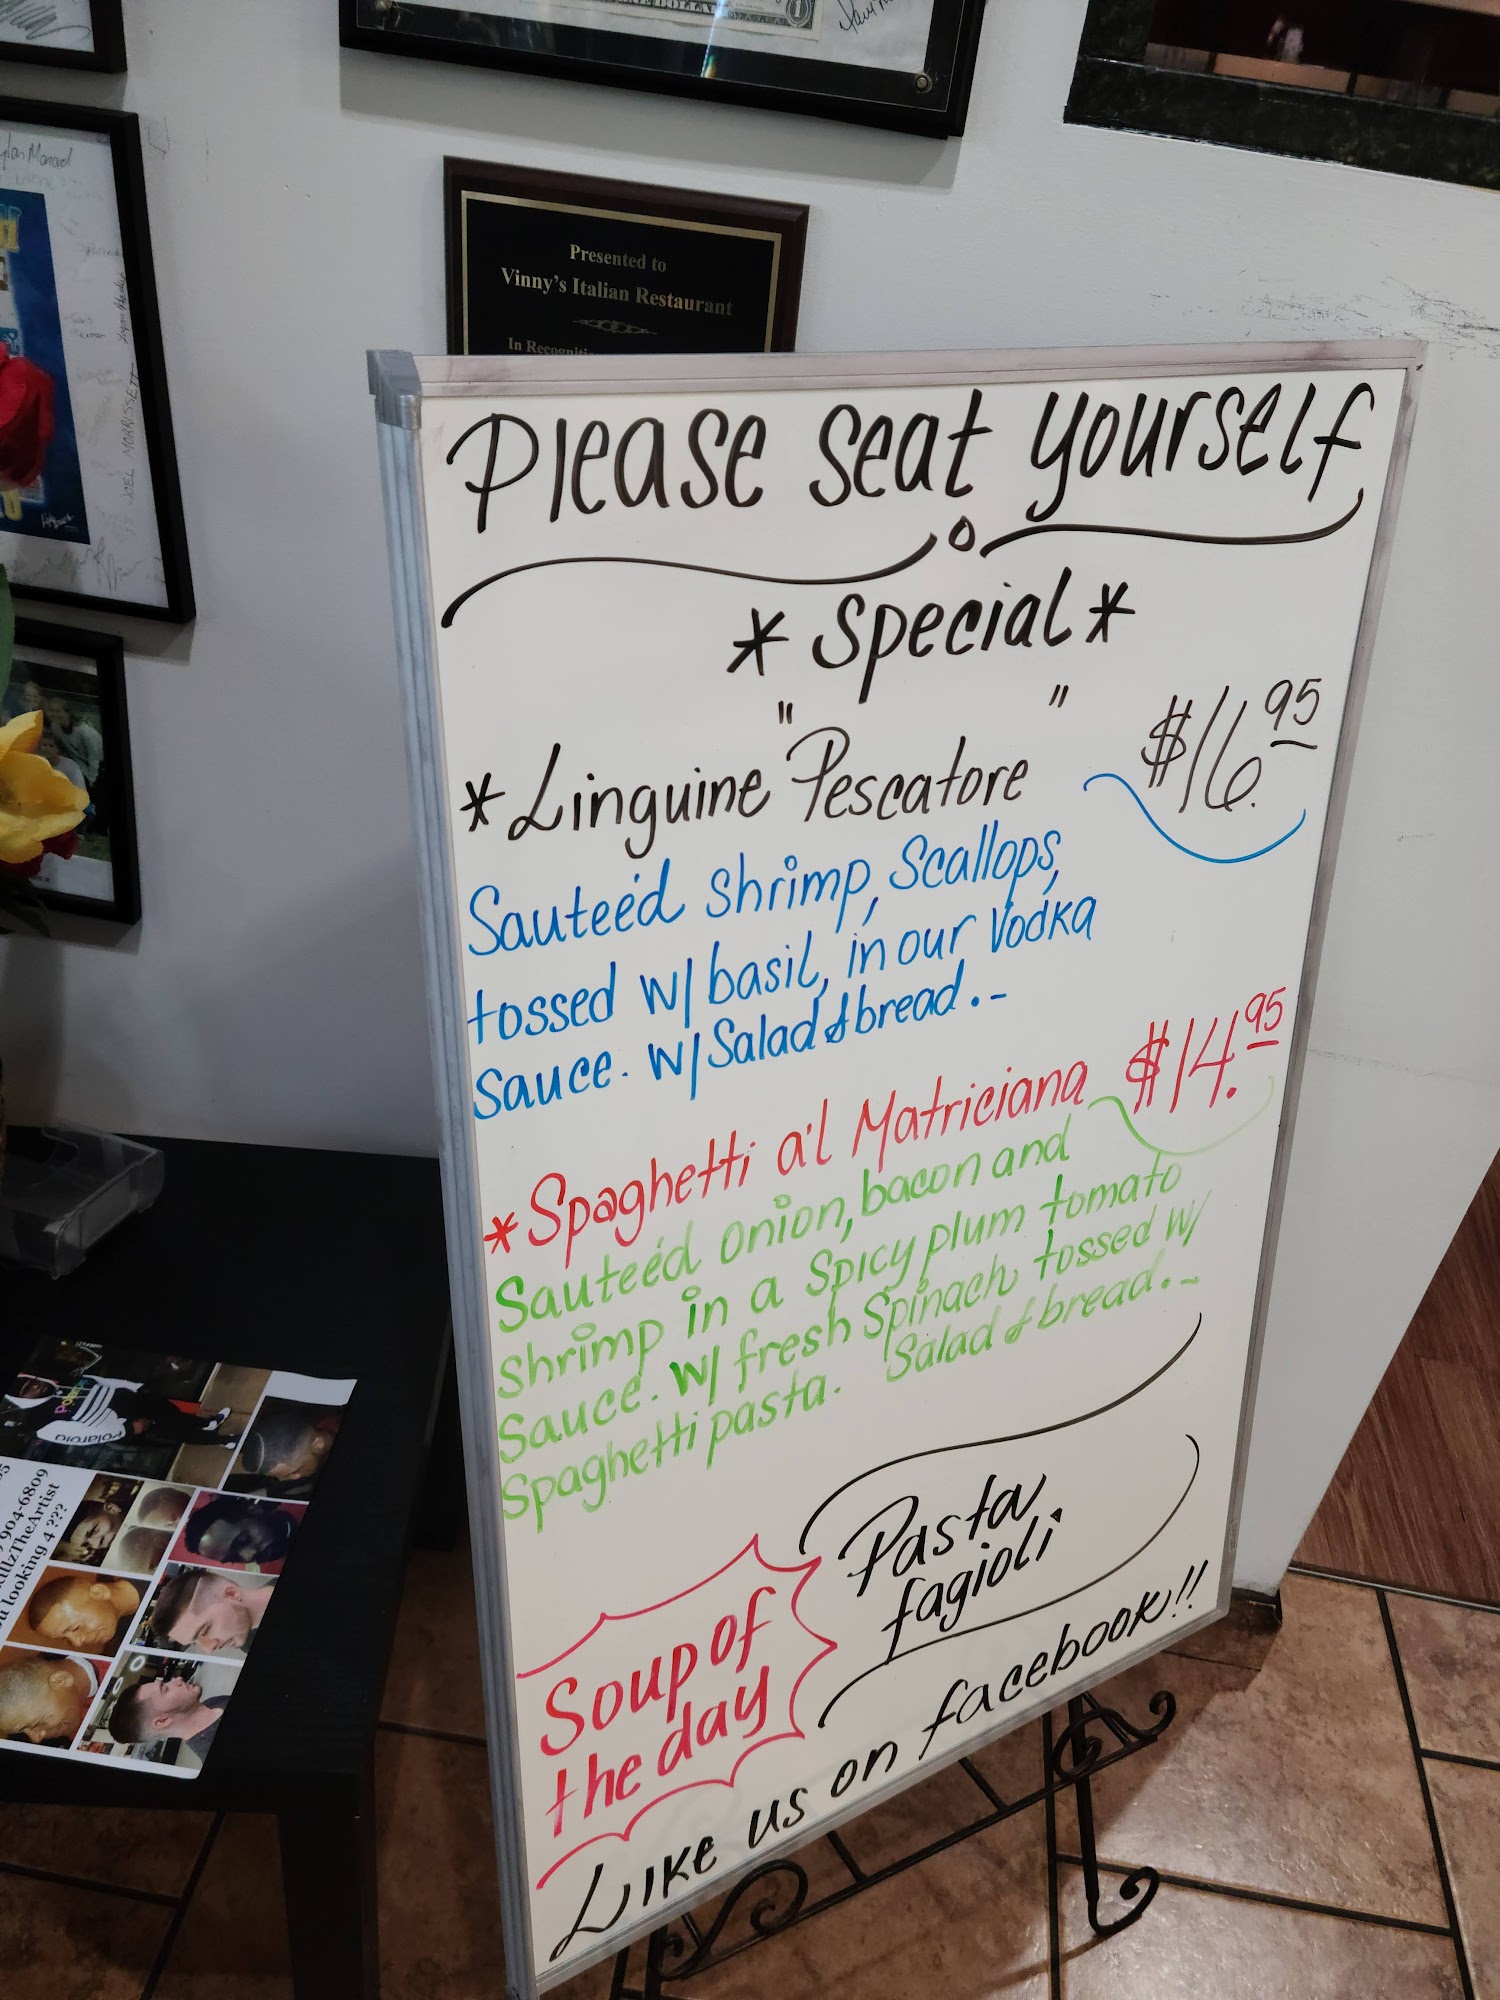 Presented to
Vinny's Italian Restaurant
In
Please seat yourself
*Special*
*Linguine "Pescatore" $16.95
Sauteéd shrimp, Scallops,
tossed w/ basil, in our Vodka
Sauce. w/ Salad & bread.-
*Spaghetti a'l Matriciana $14.95
Sauteéd onion, bacon and
shrimp in a spicy plum tomato
Sauce. w/ fresh Spinach tossed w/
Spaghetti pasta. Salad & bread.-
Soup of
the day
Pasta
fagioli
Like us on facebook!!
JOEL MORRISSETT
Polaroid
904-6809
looking 4 ???